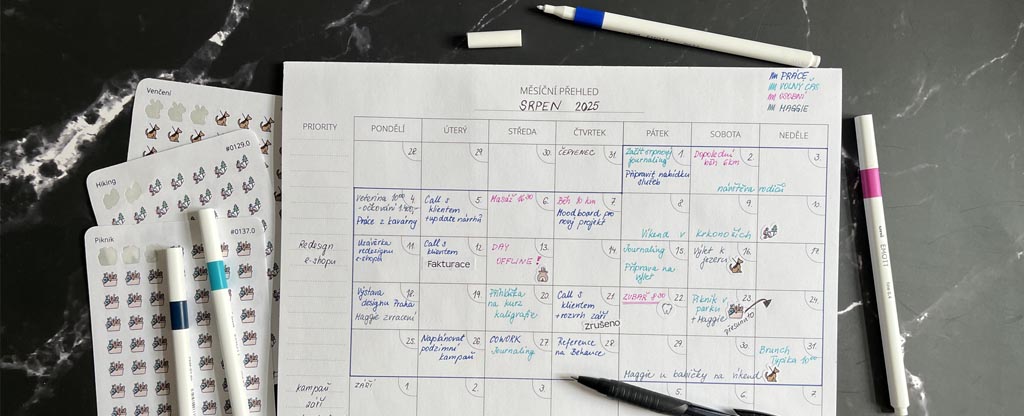 Venčení
#0129.0
Hiking
#0137.0
Piknik
MĚSÍČNÍ PŘEHLED
SRPEN 2025
PRÁCE
VOLNÝ ČAS
OSOBNÍ
MAGGIE
PRIORITY PONDĚLÍ ÚTERÝ STŘEDA ČTVRTEK PÁTEK SOBOTA NEDĚLE
28. 29. 30. ČERVENEC 31. 1. 2. 3.
Začít srpnový
journaling
Připravit nabídku
služeb
Dopolední
běh 6km
návštěva rodičů
4. 5. 6. 7. 8. 9. 10.
Veterina 10:00
- očkování
Práce z kavárny
Call s
klientem
+ update návrhů
Masáž 16:30
Běh 10 km
Moodboard pro
nový projekt
Víkend v Krkonoších
Redesign
e-shopu
11. 12. 13. 14. 15. 16. 17.
Uzávěrka
redesignu
e-shopu
Call s
klientem
Fakturace
DAY
OFFLINE!
Journaling
Příprava na
výlet
Výlet k
jezeru
18. 19. 20. 21. 22. 23. 24.
Výstava
designu Praha
Maggie
Přihláška
na kurz
kaligrafie
Call s
klientem
+ rozvrh září
zrušeno
ZUBAŘ 8:00
Piknik v
parku
+ Maggie
přesunuto
25. 26. 27. 28. 29. 30. 31.
Naplánovat
podzimní
kampaň
COWORK
Journaling
Reference
na Behance
Maggie u babičky na víkend
Brunch
Typika 10:00
kampaň
září
ZÁŘÍ 1. 2. 3. 5. 6. 7.